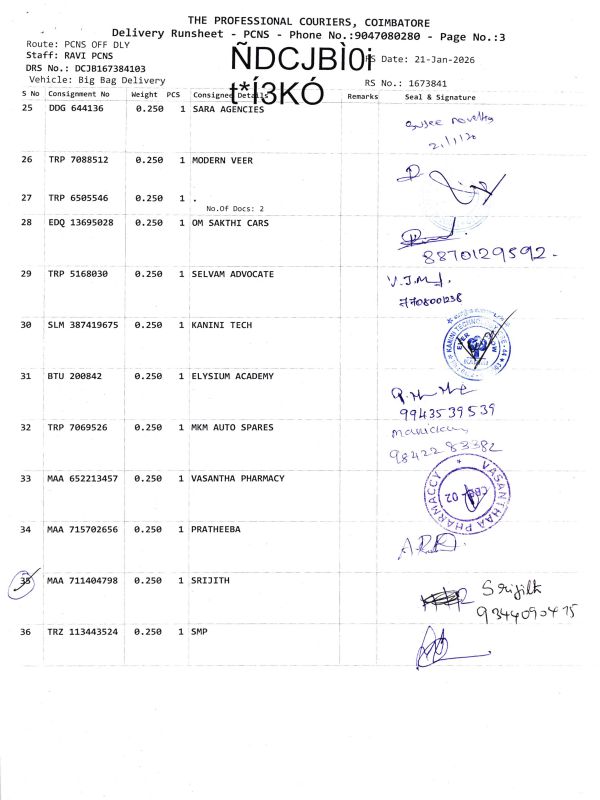 THE PROFESSIONAL COURIERS, COIMBATORE
Delivery Runsheet - PCNS - Phone No.:9047080280 - Page No.:3
Route: PCNS OFF DLY
Staff: RAVI PCNS
DRS No.: DCJB167384103
Vehicle: Big Bag Delivery
ÑDCJBÌ0i
t*Í3KÓ
RS Date: 21-Jan-2026
RS No.: 1673841
S No Consignment No Weight PCS Consignee Details Remarks Seal & Signature
25 DDG 644136 0.250 1 SARA AGENCIES
26 TRP 7088512 0.250 1 MODERN VEER
27 TRP 6505546 0.250 1 .
No.Of Docs: 2
28 EDQ 13695028 0.250 1 OM SAKTHI CARS
8870129592-
29 TRP 5168030 0.250 1 SELVAM ADVOCATE
V.J.M.
30 SLM 387419675 0.250 1 KANINI TECH
31 BTU 200842 0.250 1 ELYSIUM ACADEMY
9943539539
32 TRP 7069526 0.250 1 MKM AUTO SPARES
98422 83382
33 MAA 652213457 0.250 1 VASANTHA PHARMACY
VASANTHAA PHARMACCY
CBE-02
34 MAA 715702656 0.250 1 PRATHEEBA
35 MAA 711404798 0.250 1 SRIJITH
Srijith
9344090475
36 TRZ 113443524 0.250 1 SMP